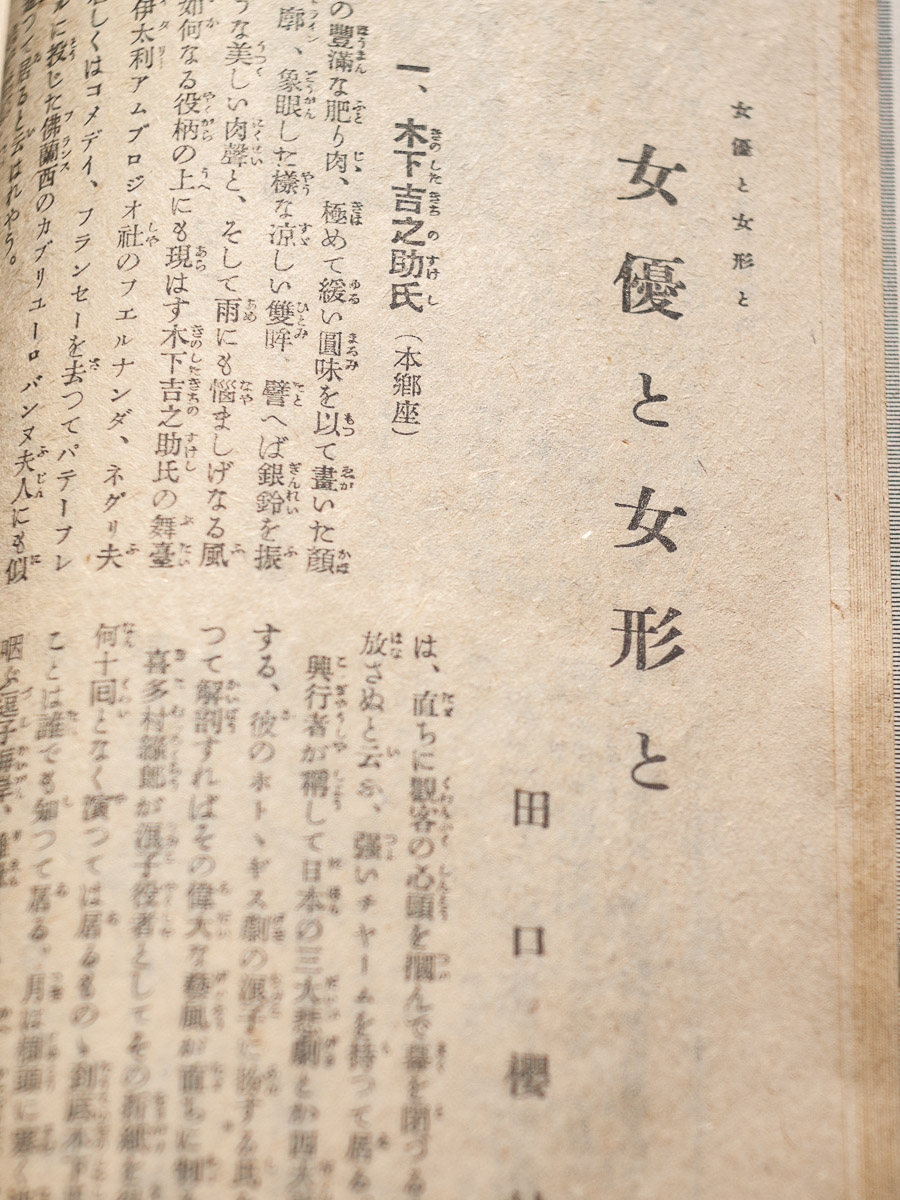 女優と女形と
女優と女形と
田口櫻
一、木下吉之助氏（本郷座）
の豐滿な肥り肉、極めて緩い圓味を以て畫いた顏
廓、象眼した樣な凉しい雙眸、譬へば銀鈴を振
うな美しい肉聲と、そして雨にも惱ましげなる風
如何なる役柄の上にも現はす木下吉之助氏の舞臺
伊太利アムブロジオ社のフエルナンダ、ネグリ夫
しくはコメデイ、フランセーを去つてパテーフレ
ルに投じた佛蘭西のカブリエーロバンヌ夫人にも似
つて居ると云はれやう。
は、直ちに觀客の心頭を摑んで幕を閉づる
放さぬと云ふ、强いチヤームを持つて居る
興行者が稱して日本の三大悲劇とか四大
する、彼のホトヽギス劇の浪子に扮する氏
つて解剖すればその偉大な藝風が直ちに
喜多村綠郎が浪子役者としてその折紙を
何十回となく演つては居るものゝ到底木下
ことは誰でも知つて居る。月は樣頭に寒く
咽ぶ逗子海岸、